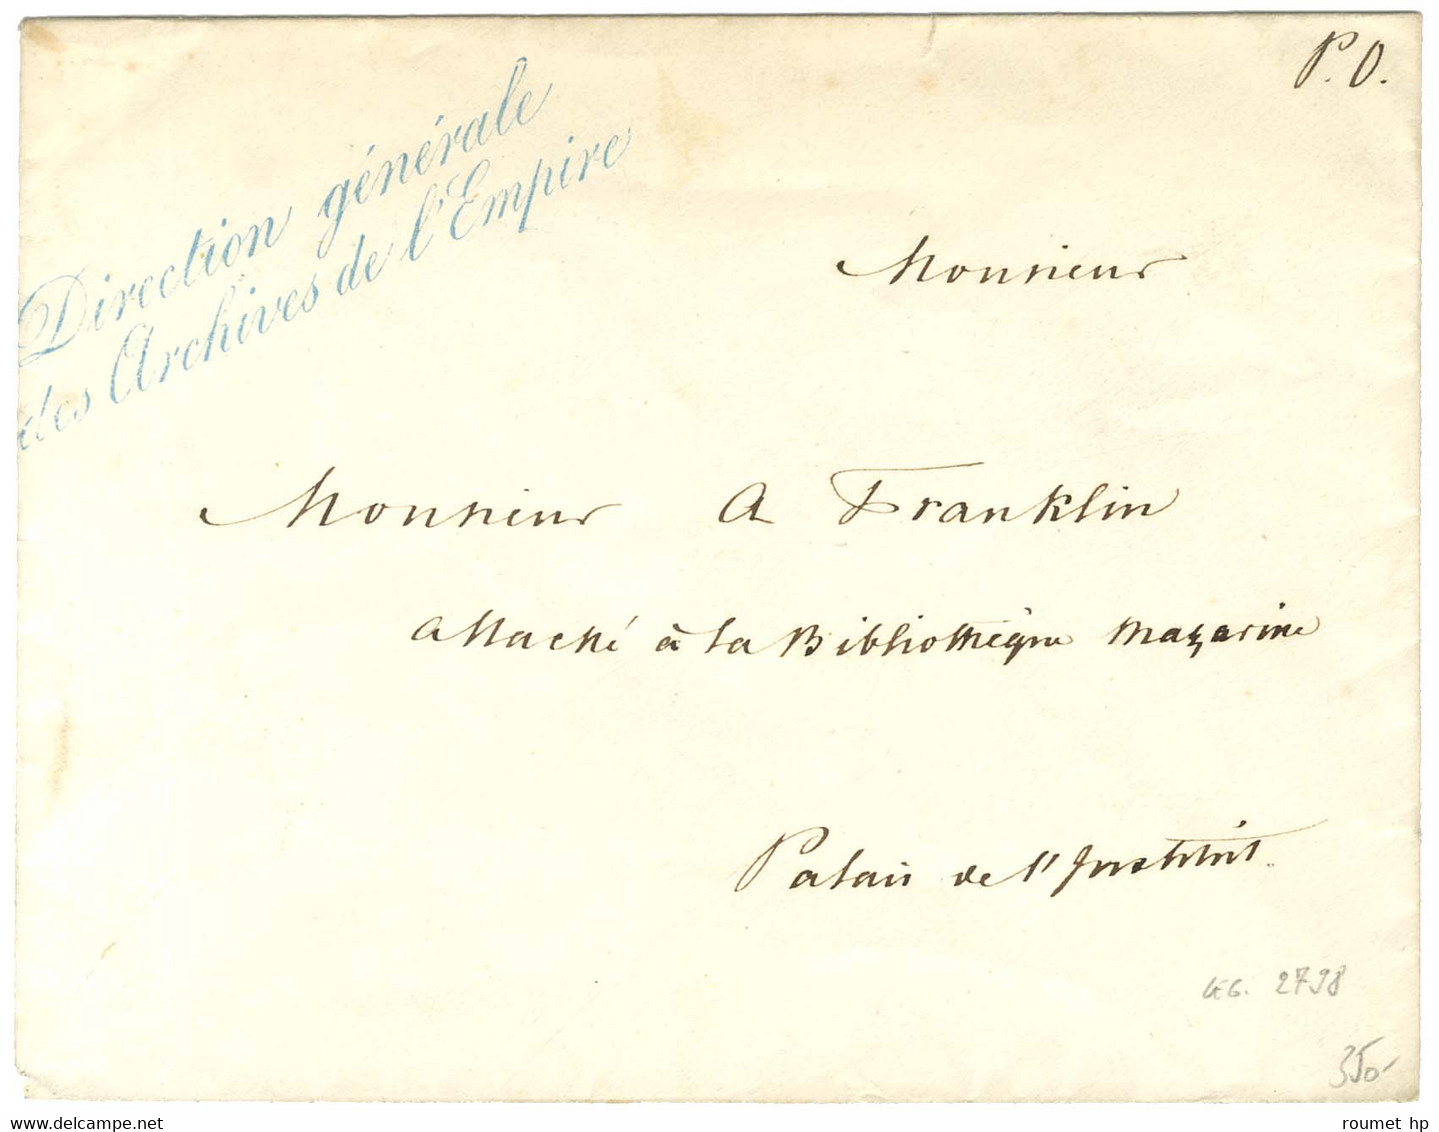 P. O.
Direction générale
des Archives de l'Empire
Monsieur
Monsieur A Franklin
attaché à la Bibliothèque Mazarine
Palais de l'Institut.
2798
350-
www.delcampe.net
roumet hp